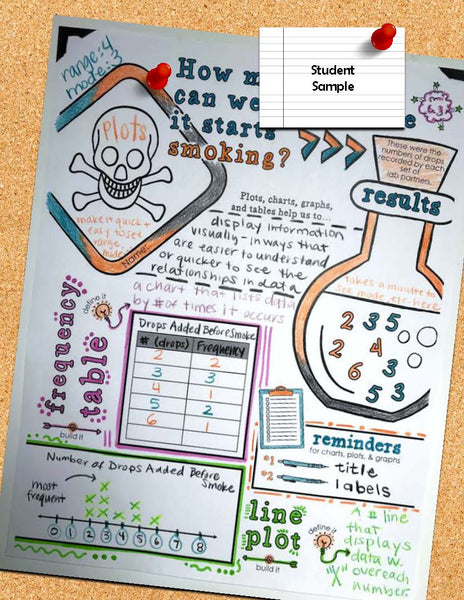 Student
Sample
range: 4
mode: 3
How m
can we
it starts
smoking?
Plots
make it quick +
easy to see
range,
mode
Name:
These were the
numbers of drops
recorded by each
set of
lab partners.
results
Plots, charts, graphs,
and tables help us to...
display information
visually - in ways that
are easier to understand
or quicker to see the
relationships in data
takes a minute to
see mode, etc. here
2 3 5
2 4 3
2 6 3
5 3
frequency
table
define it
a chart that lists data
by # of times it occurs
build it
Drops Added Before Smoke
# (drops) Frequency
2 2
3 3
4 1
5 2
6 1
reminders
for charts, plots, & graphs
#1 title
#2 labels
Number of Drops Added Before
Smoke
most
frequent
x x x x x x x x x
0 1 2 3 4 5 6 7 8
line
plot
define it
build it
A # line
that
displays
data w.
"x" over each
number